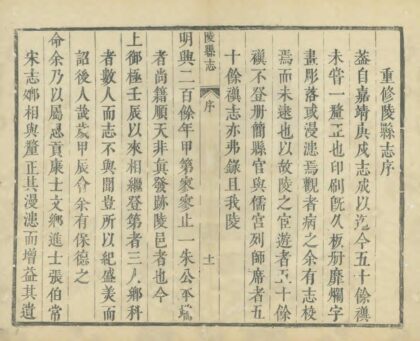 重修陵縣志序
蓋自嘉靖庚戌志成以迄今五十餘禩
未嘗一釐正也印刷旣久板册靡爛字
畫彫落或漫漶焉觀者病之余有志校
焉而未遑也以故陵之宦遊者五十餘
禩不登册簡縣官與儒宮列師席者五
十餘禩志亦弗錄且我陵
陵縣志
序
十一
明興二百餘年甲第寥寥止一朱公平
者尚籍順天非眞發跡陵邑者也今
上御極壬辰以來相繼登第者三人鄉科
者數人而志不與聞豈所以紀盛美而
詔後人哉歲甲辰會余有保德之
命余乃以屬恩貢康士文鄉進士張伯常
宋志鄉相與釐正其漫漶而增益其遺